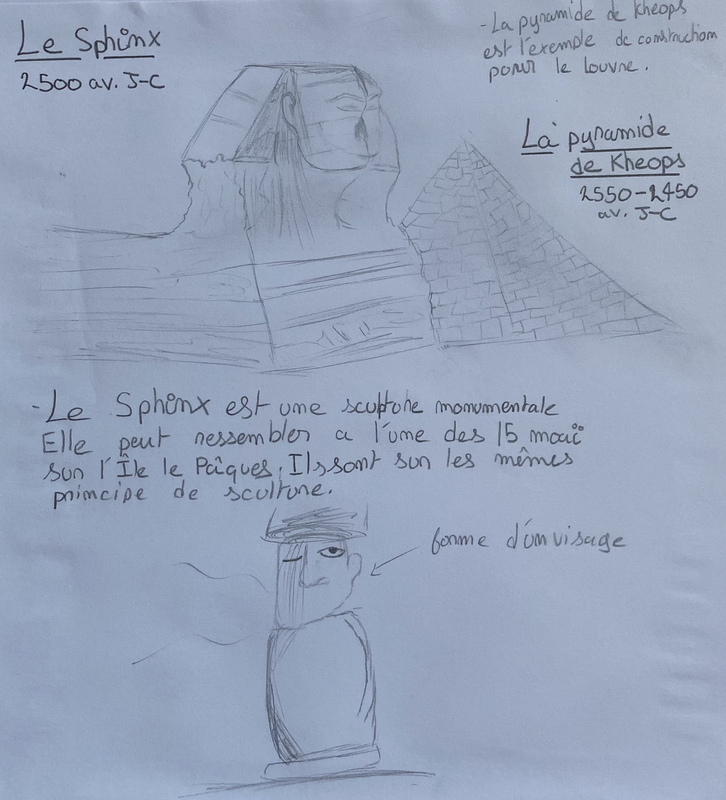 Le Sphinx
2500 av. J-C
- La pyramide de Kheops
est l'exemple de construction
pour le louvre.
La pyramide
de Kheops
2550-2450
av. J-C
- Le Sphinx est une sculpture monumentale
Elle peut ressembler a l'une des 15 moaï
sur l'Île le Pâques. Ils sont sur les mêmes
principe de sculture.
forme d'un visage